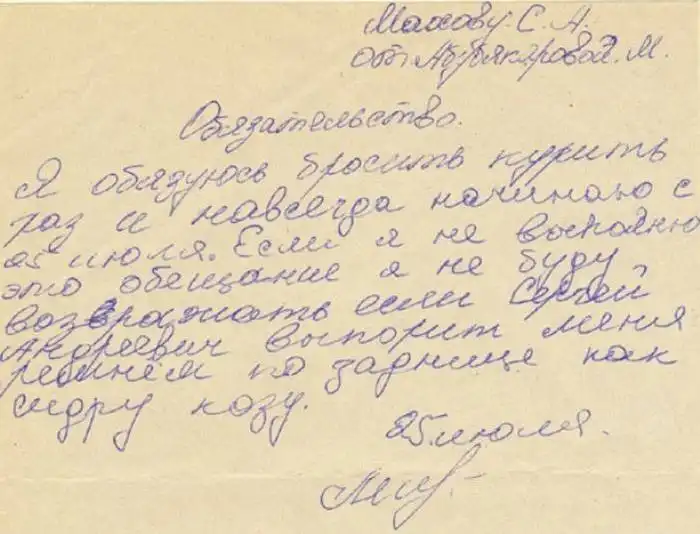 Махову С. А.
от Абубякяровой. М.
Обязательство.
Я обязуюсь бросить курить
раз и навсегда начиная с
25 июля. Если я не выполню
это обещание я не буду
возвражать если Сергей
Андреевич выпорит меня
ремнём по заднице как
сидру козу.
25 июля.